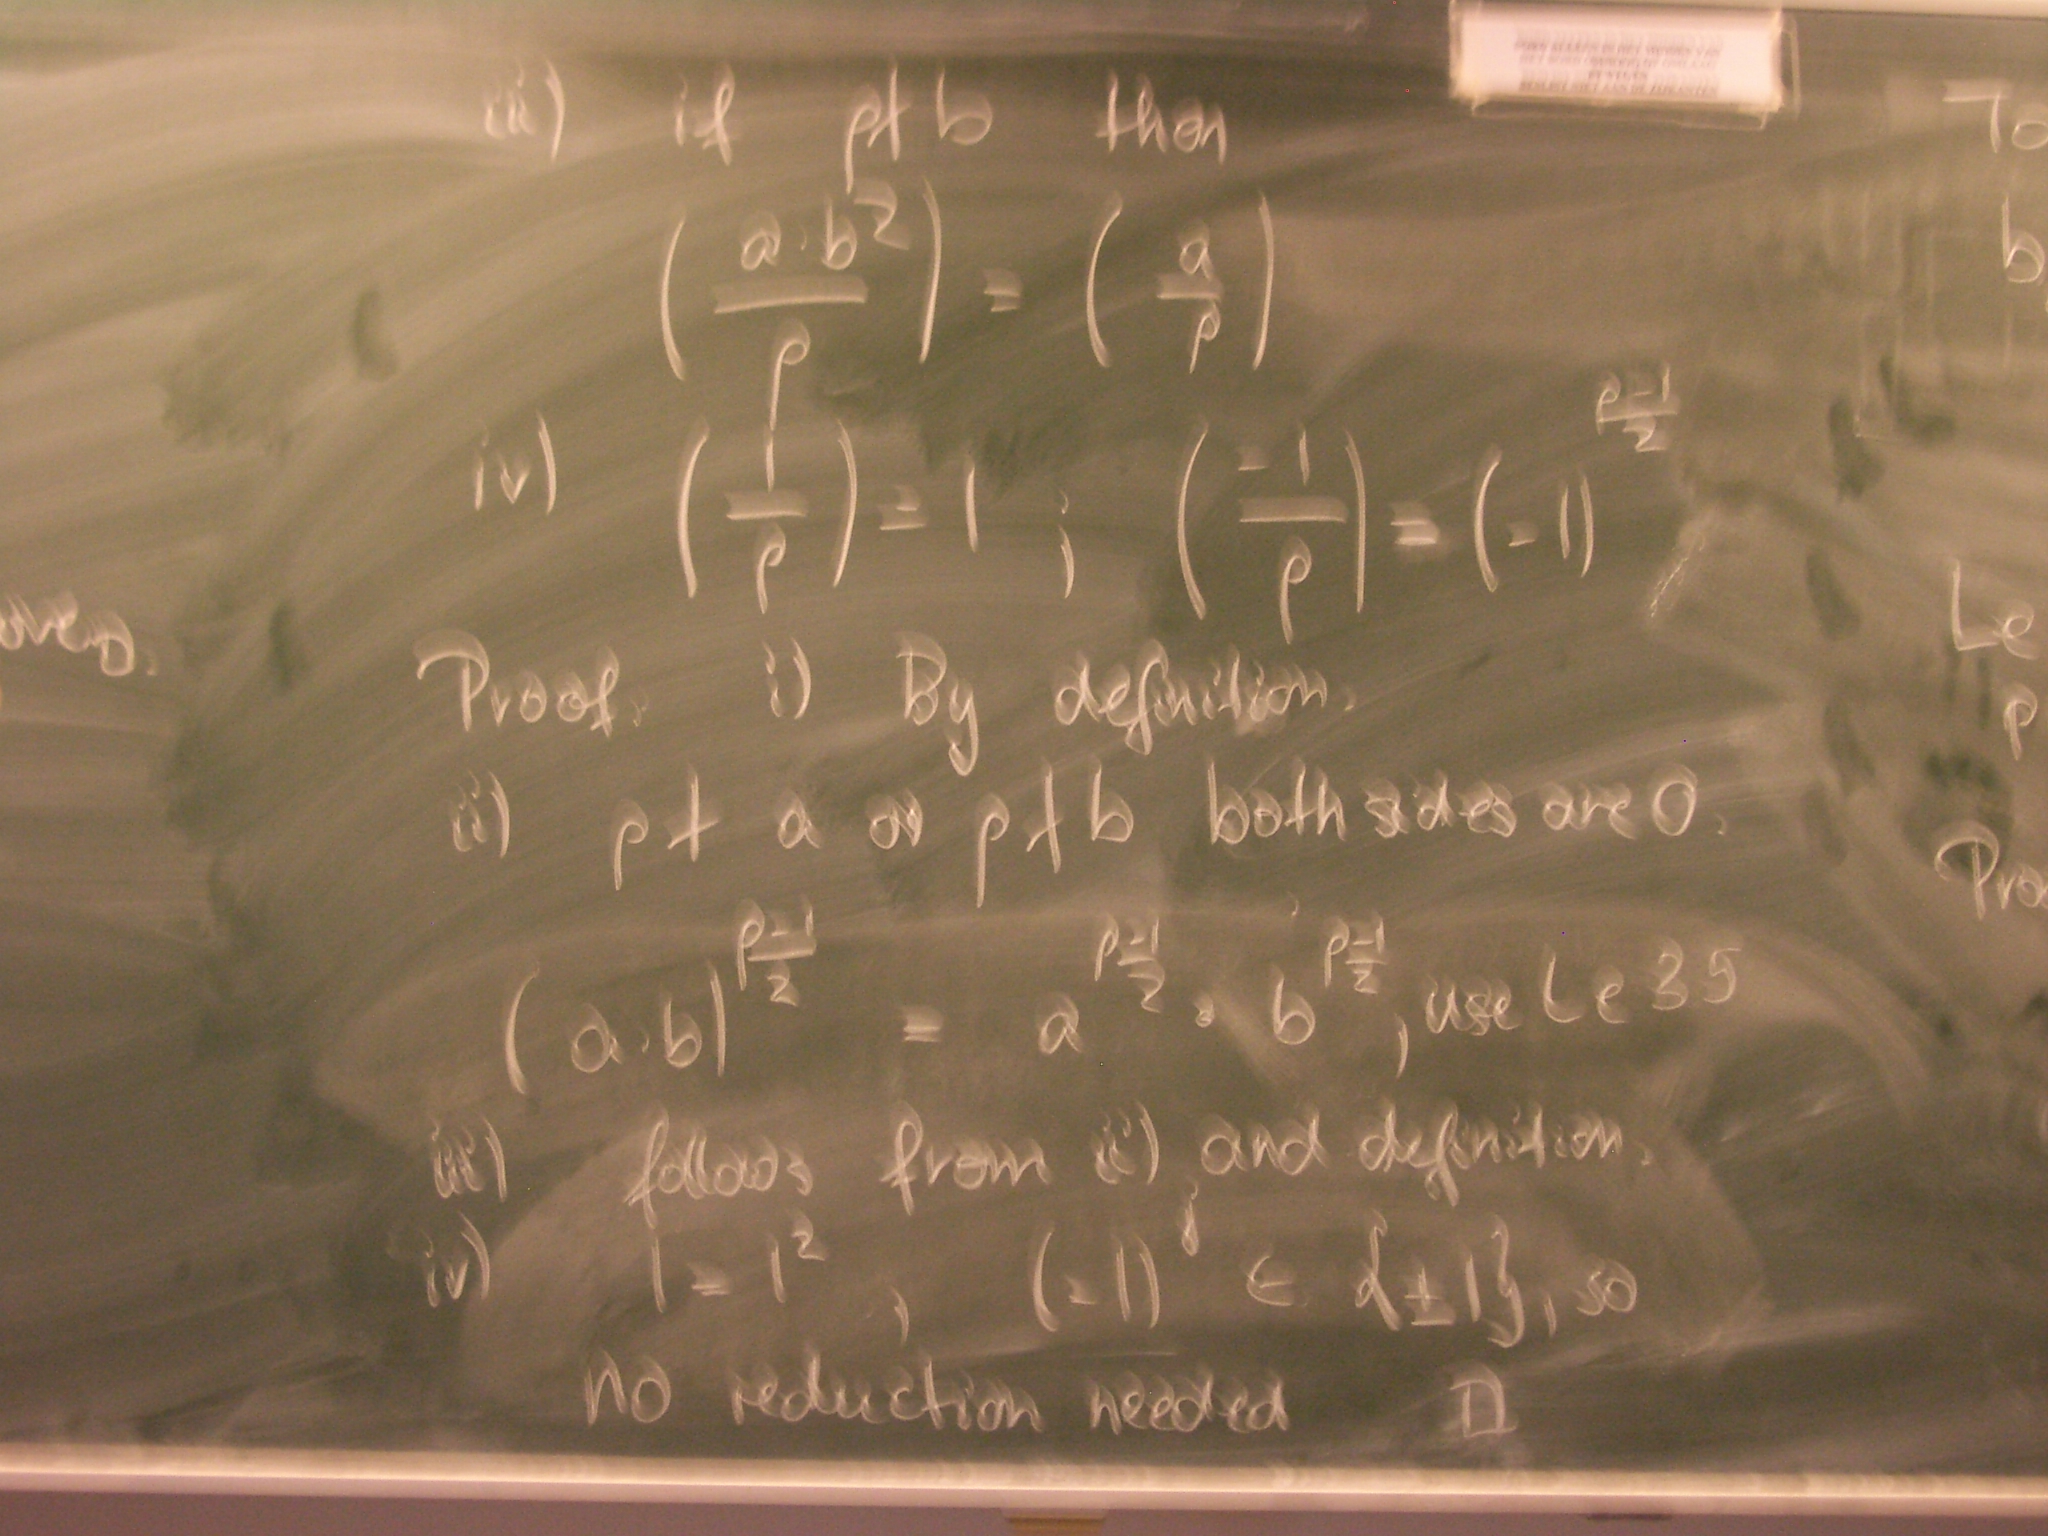 iii) if p∤b then
(a·b²/p) = (a/p)
iv) (1/p) = 1 ; (-1/p) = (-1)^((p-1)/2)
Proof. i) By definition.
ii) p∤a or p∤b both sides are 0.
(a·b)^((p-1)/2) = a^((p-1)/2) · b^((p-1)/2), use Le 35
iii) follows from ii) and definition.
iv) 1 = 1², (-1)^j ∈ {±1}, so
no reduction needed □
To
b,
Le
p
Pro